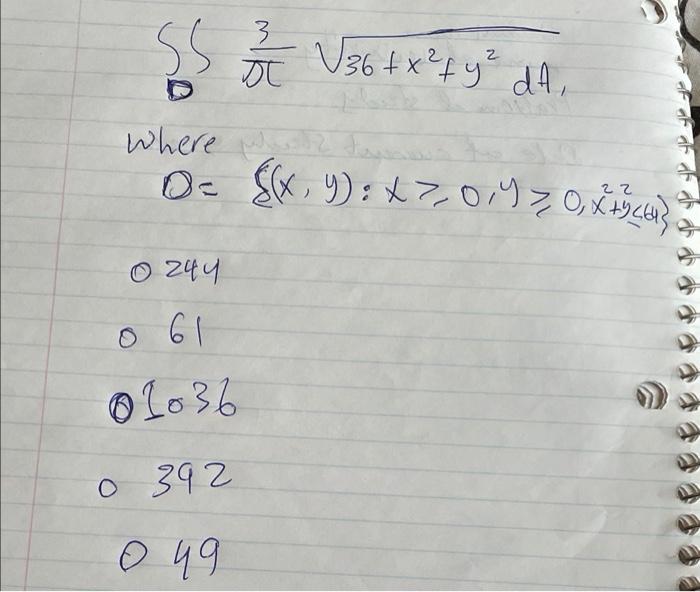 ∬_D 3/π √(36+x²+y²) dA,
where
D= {(x, y): x ≥ 0, y ≥ 0, x²+y² ≤ 64}
○ 244
○ 61
○ 1036
○ 392
○ 49